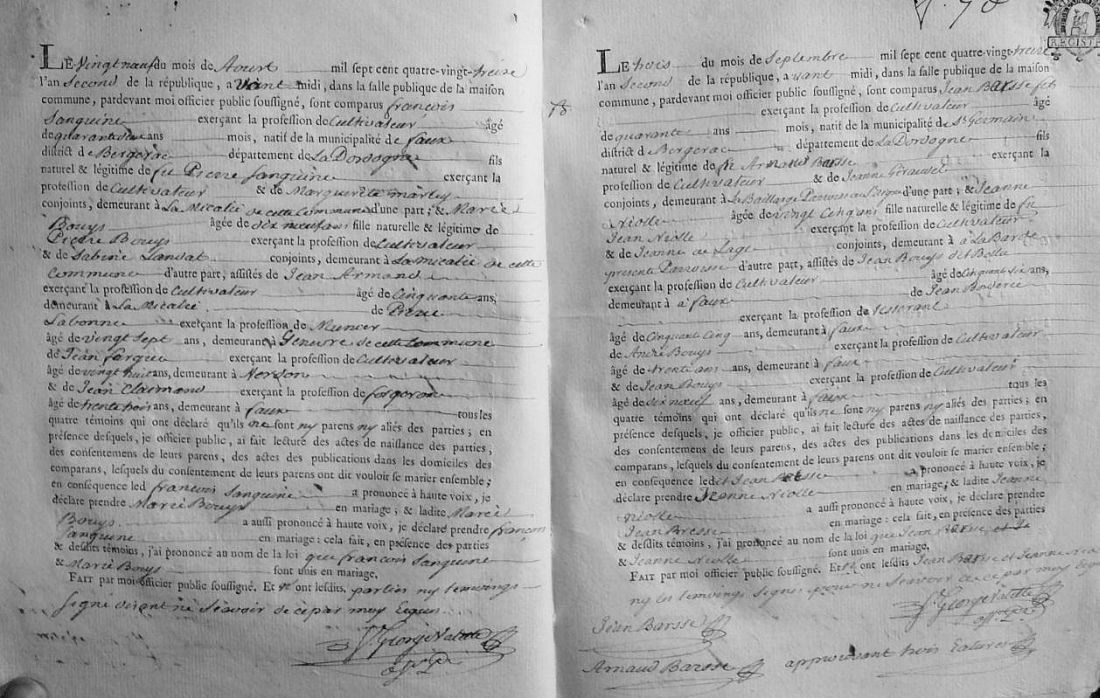 LE vingt neuf du mois de Aoust mil sept cent quatre-vingt-treize
l'an Second de la république, a vant midi, dans la salle publique de la maison
commune, pardevant moi officier public soussigné, sont comparus françois
Sanguine exerçant la profession de Cultivateur âgé
de quarante ans mois, natif de la municipalité de faux
district de Bergerac département de La Dordogne fils
naturel & légitime de fu Pierre Sanguine exerçant la
profession de Cultivateur & de Marguerite
conjoints, demeurant à La Micalie de cette Commune d'une part; & Marie
Bouys âgée de dix neuf ans fille naturelle & légitime de
Pierre Bouys exerçant la profession de Cultivateur
& de Sabine Landat conjoints, demeurant à La micalie de cette
Commune d'autre part, assistés de Jean Armand
exerçant la profession de Cultivateur âgé de Cinquante ans,
demeurant à La Micalie de Pierre
Labonne exerçant la profession de
âgé de vingt Sept ans, demeurant à de cette commune
de Jean exerçant la profession de Cultivateur
âgé de vingt huit ans, demeurant à
& de Jean Clairmond exerçant la profession de forgeron
âgé de trente trois ans, demeurant à faux tous les
quatre témoins qui ont déclaré qu'ils ne sont ny parens ny aliés des parties; en
présence desquels, je officier public, ai fait lecture des actes de naissance des parties,
des consentemens de leurs parens, des actes des publications dans les domiciles des
comparans, lesquels du consentement de leurs parens ont dit vouloir se marier ensemble;
en conséquence led françois Sanguine a prononcé à haute voix, je
déclare prendre Marie Bouys en mariage; & ladite Marie
Bouys a aussi prononcé à haute voix, je déclare prendre françois
Sanguine en mariage: cela fait, en présence des parties
& desdits témoins, j'ai prononcé au nom de la loi que françois Sanguine
& Marie Bouys sont unis en mariage.
FAIT par moi officier public soussigné. Et ont lesdits, parties ny temoings
Signé de ce par moy
St George
off. P.
78
REGISTR
LE trois du mois de Septembre mil sept cent quatre-vingt-treize
Second de la république, a vant midi, dans la salle publique de la maison
commune, pardevant moi officier public soussigné, sont comparus Jean Barsse fils
exerçant la profession de Cultivateur âgé
de quarante ans mois, natif de la municipalité de St Germain
district de Bergerac département de La Dordogne fils
naturel & légitime de fu Arnaud Barsse exerçant la
profession de Cultivateur & de Jeanne
conjoints, demeurant à d'une part; & Jeanne
Niolle âgée de vingt Cinq ans fille naturelle & légitime de fu
Jean Niolle exerçant la profession de Cultivateur
& de Jeanne de Lage conjoints, demeurant à La Barde
presente Paroisse d'autre part, assistés de Jean Bouys
exerçant la profession de Cultivateur âgé de Cinquante Six ans,
demeurant à a faux de Jean
exerçant la profession de Tisserant
âgé de Cinquante Cinq ans, demeurant à faux
de André Bouys exerçant la profession de Cultivateur
âgé de trente ans ans, demeurant à faux
& de Jean Bouys exerçant la profession de Cultivateur
âgé de dix neuf ans, demeurant à faux tous les
quatre témoins qui ont déclaré qu'ils ne sont ny parens ny aliés des parties; en
présence desquels, je officier public, ai fait lecture des actes de naissance des parties,
des consentemens de leurs parens, des actes des publications dans les domiciles des
comparans, lesquels du consentement de leurs parens ont dit vouloir se marier ensemble;
en conséquence ledit Jean a prononcé à haute voix, je
déclare prendre Jeanne Niolle en mariage; & ladite Jeanne
Niolle a aussi prononcé à haute voix, je déclare prendre
Jean en mariage: cela fait, en présence des parties
& desdits témoins, j'ai prononcé au nom de la loi que Jean
& Jeanne Niolle sont unis en mariage.
FAIT par moi officier public soussigné. Et ont lesdits Jean Barsse et Jeanne
ny les temoings Signé pour ne Sçavoir de ce par moy
St George
off. P.
Jean Barsse
Arnaud Barsse approuvant trois